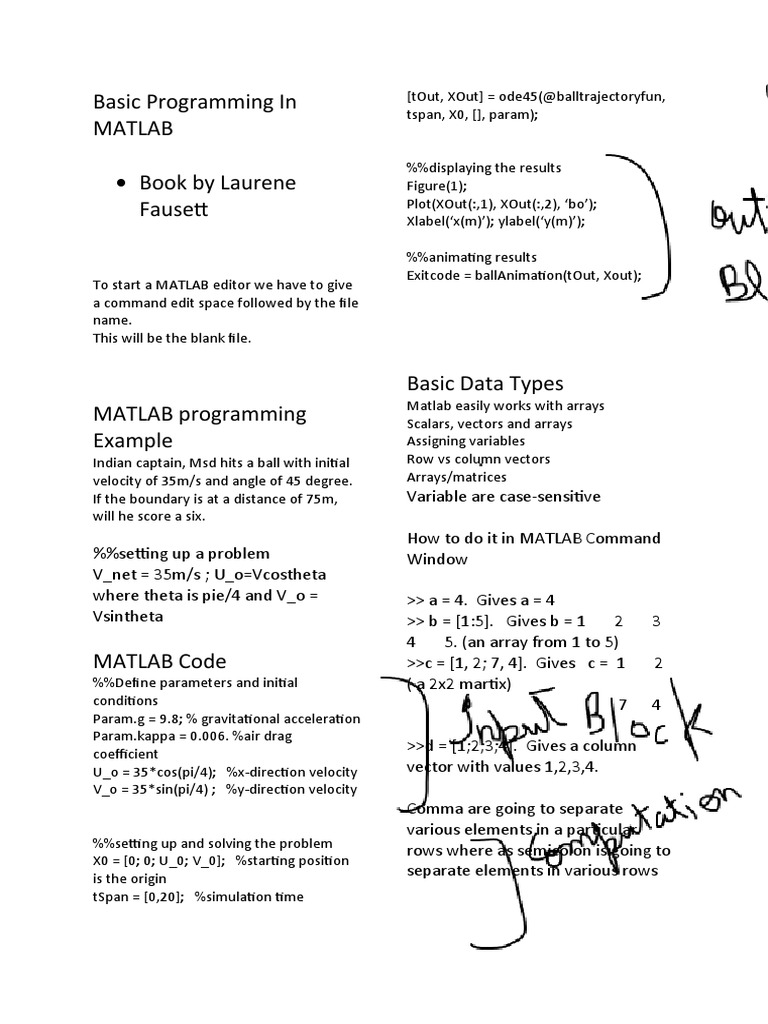 Basic Programming In
MATLAB
• Book by Laurene
Fausett
To start a MATLAB editor we have to give
a command edit space followed by the file
name.
This will be the blank file.
MATLAB programming
Example
Indian captain, Msd hits a ball with initial
velocity of 35m/s and angle of 45 degree.
If the boundary is at a distance of 75m,
will he score a six.
%%setting up a problem
V_net = 35m/s ; U_o=Vcostheta
where theta is pie/4 and V_o =
Vsintheta
MATLAB Code
%%Define parameters and initial
conditions
Param.g = 9.8; % gravitational acceleration
Param.kappa = 0.006. %air drag
coefficient
U_o = 35*cos(pi/4); %x-direction velocity
V_o = 35*sin(pi/4) ; %y-direction velocity
%%setting up and solving the problem
X0 = [0; 0; U_0; V_0]; %starting position
is the origin
tSpan = [0,20]; %simulation time
[tOut, XOut] = ode45(@balltrajectoryfun,
tspan, X0, [], param);
%%displaying the results
Figure(1);
Plot(XOut(:,1), XOut(:,2), ‘bo’);
Xlabel(‘x(m)’); ylabel(‘y(m)’);
%%animating results
Exitcode = ballAnimation(tOut, Xout);
Out
Bl
Basic Data Types
Matlab easily works with arrays
Scalars, vectors and arrays
Assigning variables
Row vs column vectors
Arrays/matrices
Variable are case-sensitive
How to do it in MATLAB Command
Window
>> a = 4. Gives a = 4
>> b = [1:5]. Gives b = 1 2 3
4 5. (an array from 1 to 5)
>>c = [1, 2; 7, 4]. Gives c = 1 2
( a 2x2 martix)
7 4
Input Block
>>d = [1;2;3;4]. Gives a column
vector with values 1,2,3,4.
Computation
Comma are going to separate
various elements in a particular
rows where as semicolon is going to
separate elements in various rows